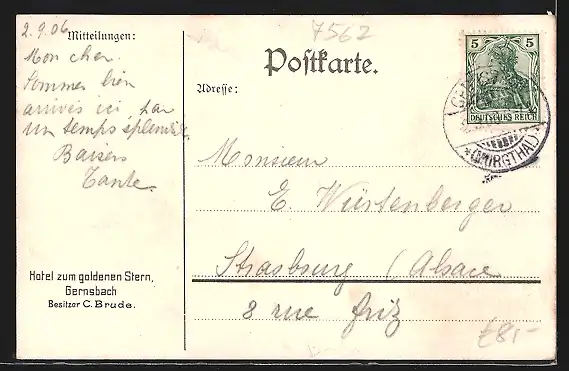 2.9.06
Mitteilungen:
Mon cher.
Sommes bien
arrivés ici, par
un temps splendide.
Baisers
Tante.
Hotel zum goldenen Stern,
Gernsbach
Besitzer C. Brude.
7562
Postkarte.
Adresse:
5 5
DEUTSCHES REICH
(MURGTHAL)
Monsieur
E. Würtenberger
Strasburg (Alsace
8 rue Fritz
£8,-